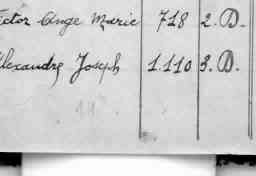 ictor Ange Marie 718 2. D.
lexandre Joseph 1.110 3. D.